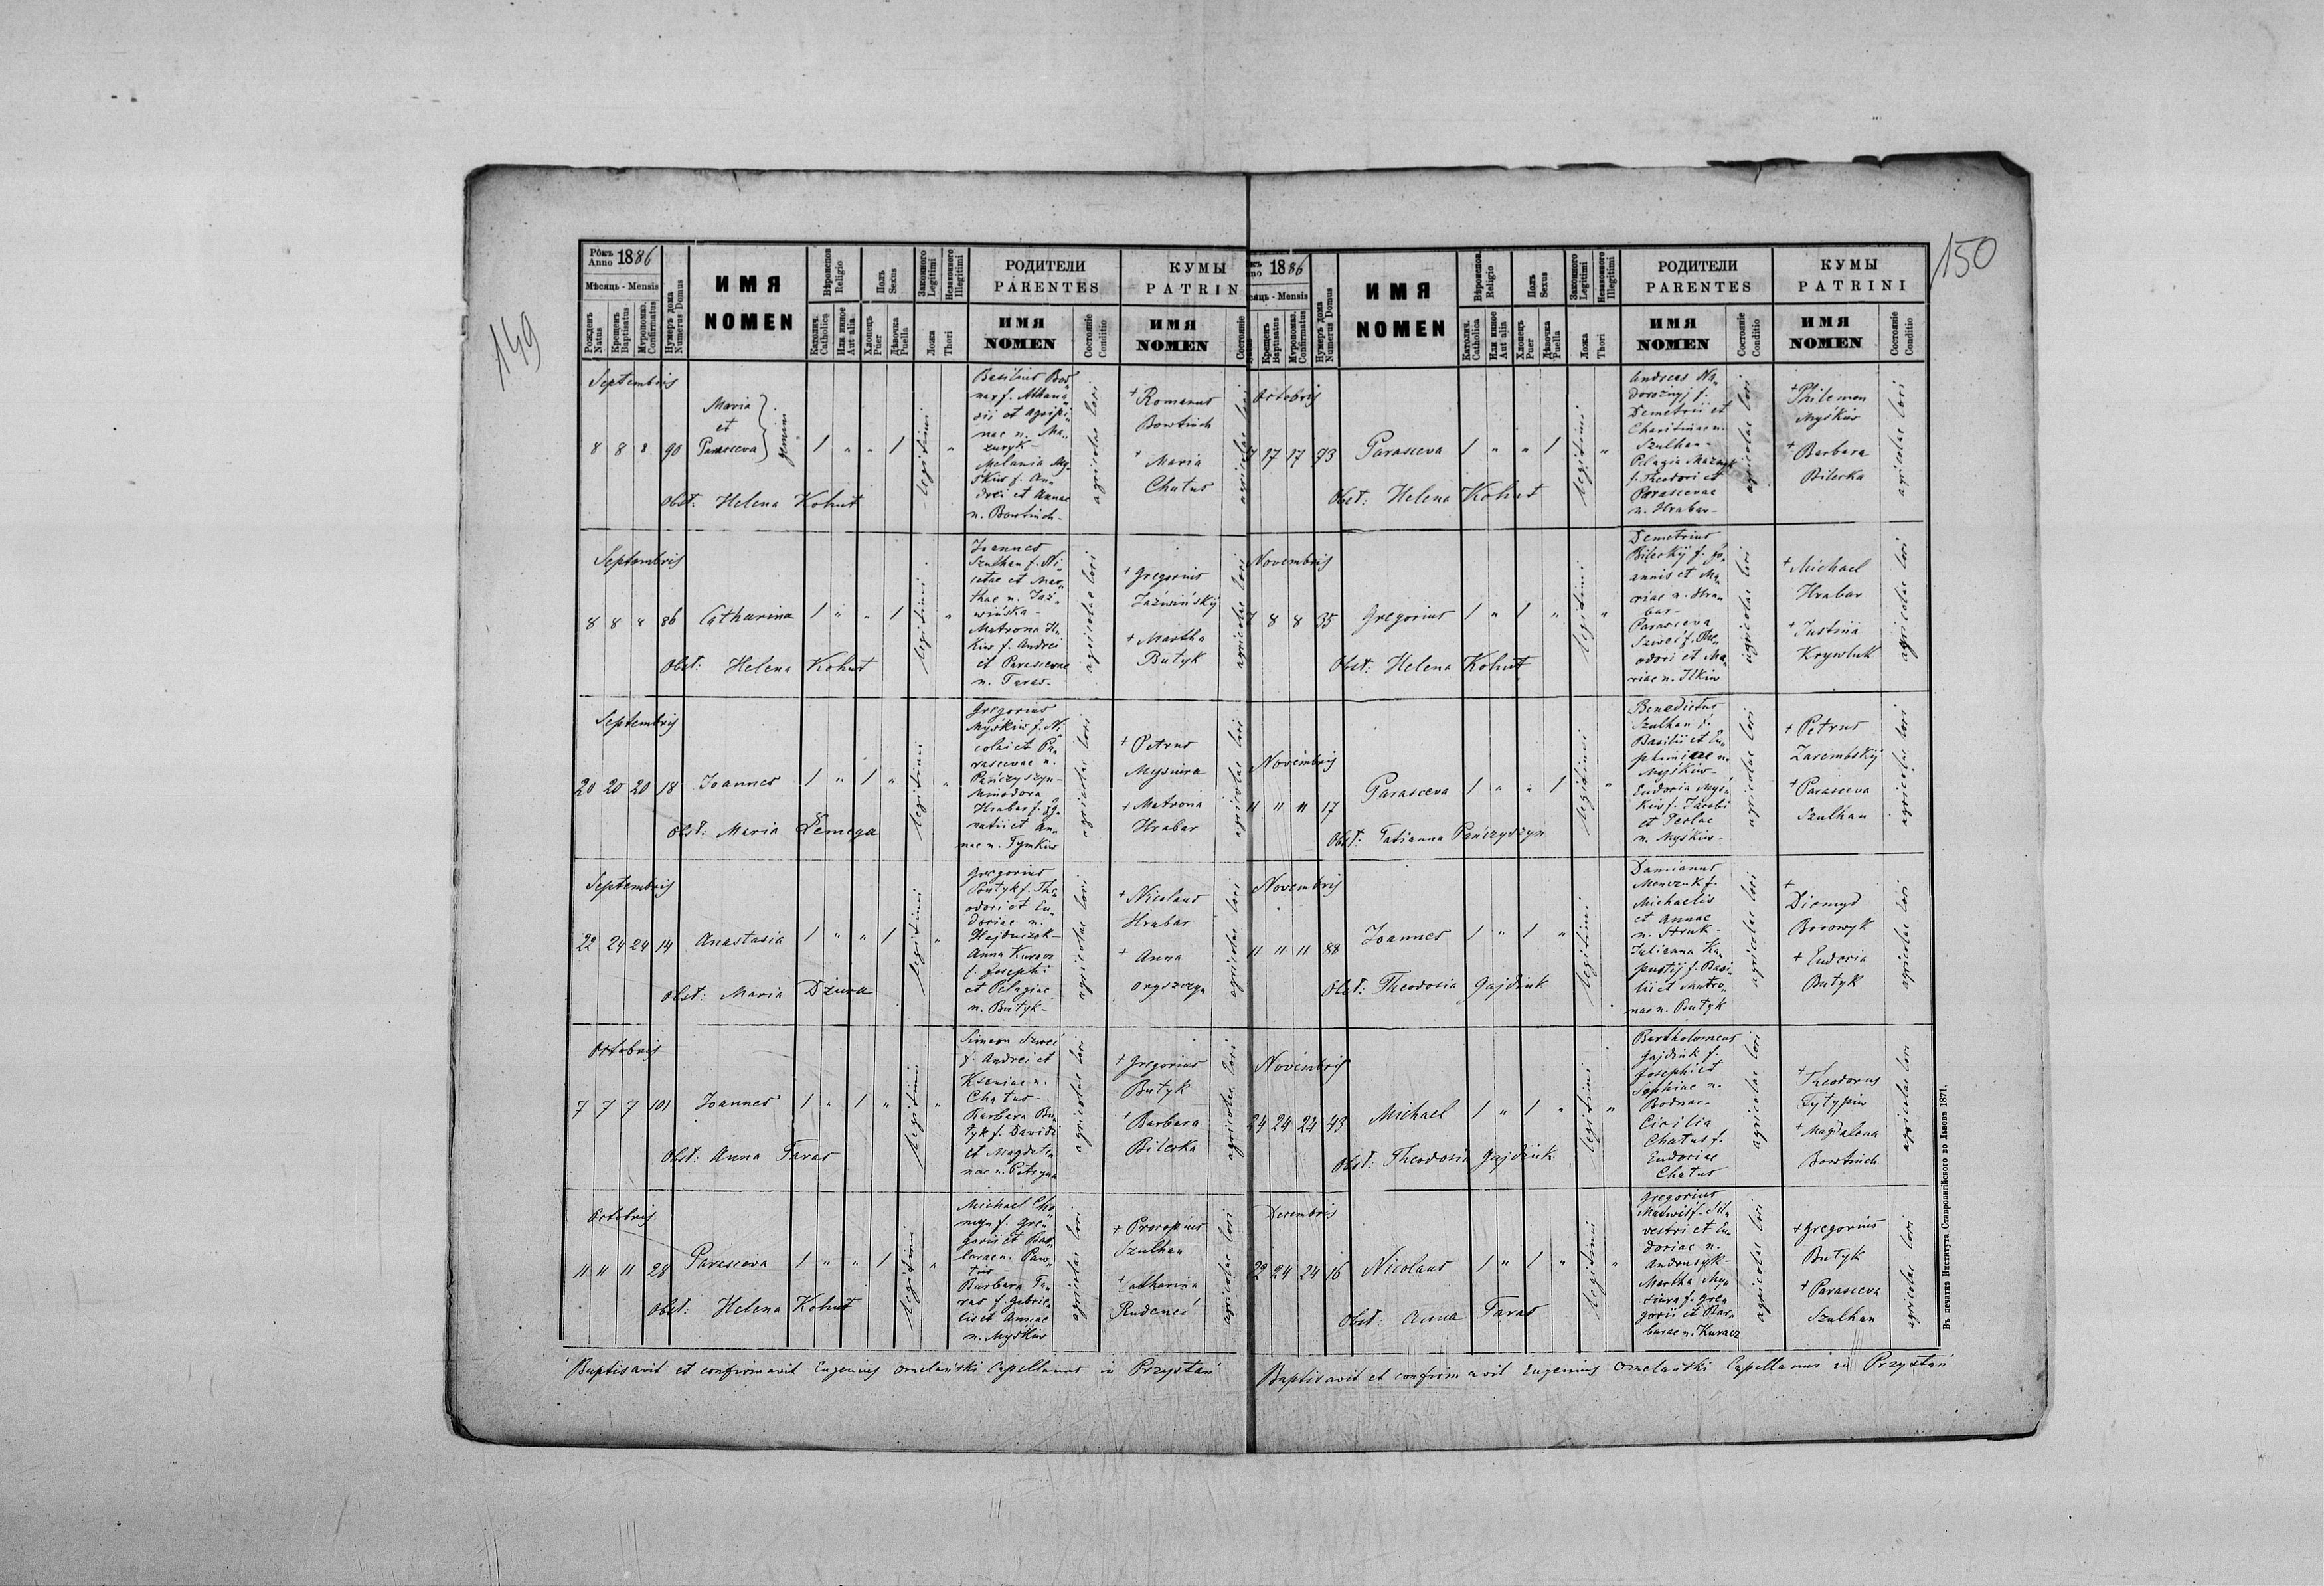 149
Рôкъ Anno 1886
Мѣсяць - Mensis
Рожденъ Natus
Крещенъ Baptisatus
Мѵропомаз. Confirmatus
Нумеръ дома Numerus Domus
ИМЯ
NOMEN
Вѣроиспов Religio
Католич. Catholica
Или иное Aut alia
Полъ Sexus
Хлопець Puer
Дѣвочка Puella
Законного Legitimi
Незаконного Illegitimi
Ложа Thori
РОДИТЕЛИ
PARENTES
ИМЯ
NOMEN
Состояніе Conditio
КУМЫ
PATRIN
ИМЯ
NOMEN
Состояніе
Septembris
8 8 8 90
Maria
et
Parasceva
gemini
1 " " 1 legitimi "
Basilius Bod„
nar f. Athana„
sii et Agripi„
nae n. Ma„
zuryk -
Melania My„
śkiw f. An„
drei et Annae
n. Bowtiuch -
agricolae loci
+ Romanus
Bowtiuch
+ Maria
Chatus
agricolae loci
Obst: Helena Kohut
Septembris
8 8 8 86 Catharina 1 " " 1 legitimi "
Joannes
Szulhan f. Ni„
cetae et Mar„
thae n. Jaź„
wińska -
Matrona Il„
kiw f. Andrei
et Parascevae
n. Taras -
agricolae loci
+ Gregorius
Jaźwińskÿ
+ Martha
Butyk
agricolae loci
Obst: Helena Kohut
Septembris
20 20 20 18 Joannes 1 " 1 " legitimi "
Gregorius
Myśkiw f. Ni„
colai et Pa„
rascevae n.
Pańczyszyn -
Minodora
Hrabar f. Ig„
natii et An„
nae n. Tymkiw
agricolae loci
+ Petrus
+ Matrona
Hrabar
agricolae loci
Obst: Maria
Septembris
22 24 24 14 Anastasia 1 " " 1 legitimi "
Gregorius
Butyk f. The„
odori et Eu„
doriae n.
Hajduczok -
Anna Kuracz
f. Josephi
et Pelagiae
n. Butyk -
agricolae loci
+ Nicolaus
Hrabar
+ Anna
Onyszczyn
agricolae loci
Obst: Maria Dziura
Octobris
7 7 7 101 Joannes 1 " 1 " legitimi "
Simeon Szweć
f. Andrei et
Kseniae n.
Chatus -
Barbara Bu„
tyk f. Davidi
et Magdale„
nae n. Petryna
agricolae loci
+ Gregorius
Butyk
+ Barbara
Bilecka
agricolae loci
Obst: Anna Taras
Octobris
11 11 11 28 Parasceva 1 " " 1 legitimi "
Michael Cho„
myn f. Gre„
gorii et Bar„
barae n. Paw„
Barbara Ta„
ras f. Gabrie„
lis et Annae
n. Myśkiw
agricolae loci
+ Procopius
Szulhan
+ Catharina
Rudeneć
agricolae loci
Obst: Helena Kohut
Baptisavit et confirmavit Eugenius Omelański Capellanus in Przystań
150
1886
Мѣсяць - Mensis
Крещенъ Baptisatus
Мѵропомаз. Confirmatus
Нумеръ дома Numerus Domus
ИМЯ
NOMEN
Вѣроиспов. Religio
Католич. Catholica
Или иное Aut alia
Полъ Sexus
Хлопець Puer
Дѣвочка Puella
Законного Legitimi
Незаконного Illegitimi
Ложа Thori
РОДИТЕЛИ
PARENTES
ИМЯ
NOMEN
Состояніе Conditio
КУМЫ
PATRINI
ИМЯ
NOMEN
Состояніе Conditio
Octobris
17 17 73 Parasceva 1 " " 1 legitimi "
Andreas Na„
dorożnyj f.
Demetrii et
Charitinae n.
Szulhan -
Pelagia Mazuryk
f. Theodori et
Parascevae
n. Hrabar -
agricolae loci
+ Philemon
Myśkiw
+ Barbara
Bilecka
agricolae loci
Obst: Helena Kohut
Novembris
7 8 8 35 Gregorius 1 " 1 " legitimi "
Demetrius
Bileckij f. Jo„
annis et Ma„
riae n. Hra„
bar -
Parasceva
Szweć f. The„
odori et Ma„
riae n. Ilkiw
agricolae loci
+ Michael
Hrabar
+ Justina
Krywluk
agricolae loci
Obst: Helena Kohut
Novembris
11 " 11 17 Parasceva 1 " " 1 legitimi "
Benedictus
Szulhan f.
Basilii et Eu„
phimiae n.
Myśkiw -
Eudoxia Myś„
kiw f. Jacobi
et Teclae
n. Myśkiw -
agricolae loci
+ Petrus
Zarembskÿ
+ Parasceva
Szulhan
agricolae loci
Obst: Tatianna Pańczyszyn
Novembris
11 " 11 88 Joannes 1 " 1 " legitimi
Damianus
Menczuk f.
Michaelis
et Annae
n. Struk -
Julianna Ka„
pustij f. Basi„
lii et Matro„
nae n. Butyk
agricolae loci
+
Diomyd
Borowyk
+ Eudocia
Butyk
agricolae loci
Obst: Theodosia Gajdiuk
Novembris
24 24 24 43 Michael 1 " 1 " legitimi "
Bartholomeus
Gajdiuk f.
Josephi et
Sophiae n.
Bodnar -
Cicilia
Chatus f.
Eudociae
Chatus
agricolae loci
+ Theodorus
Tytypiw
+ Magdalena
Bowtiuch
agricolae loci
Obst: Theodosia Gajdiuk
Decembris
22 24 24 16 Nicolaus 1 " 1 " legitimi "
Gregorius
Matwiś f. Sil„
vestri et Eu„
dociae n.
Andrusyk -
Martha My„
siura f. Gre„
gorii et Bar„
barae n. Kuracz
agricolae loci
+ Gregorius
Butyk
+ Parasceva
Szulhan
agricolae loci
Obst: Anna Taras
Baptisavit et confirmavit Eugenius Omelański Capellanus in Przystań
Въ печатнѣ Института Ставропигійского во Львовѣ 1871.